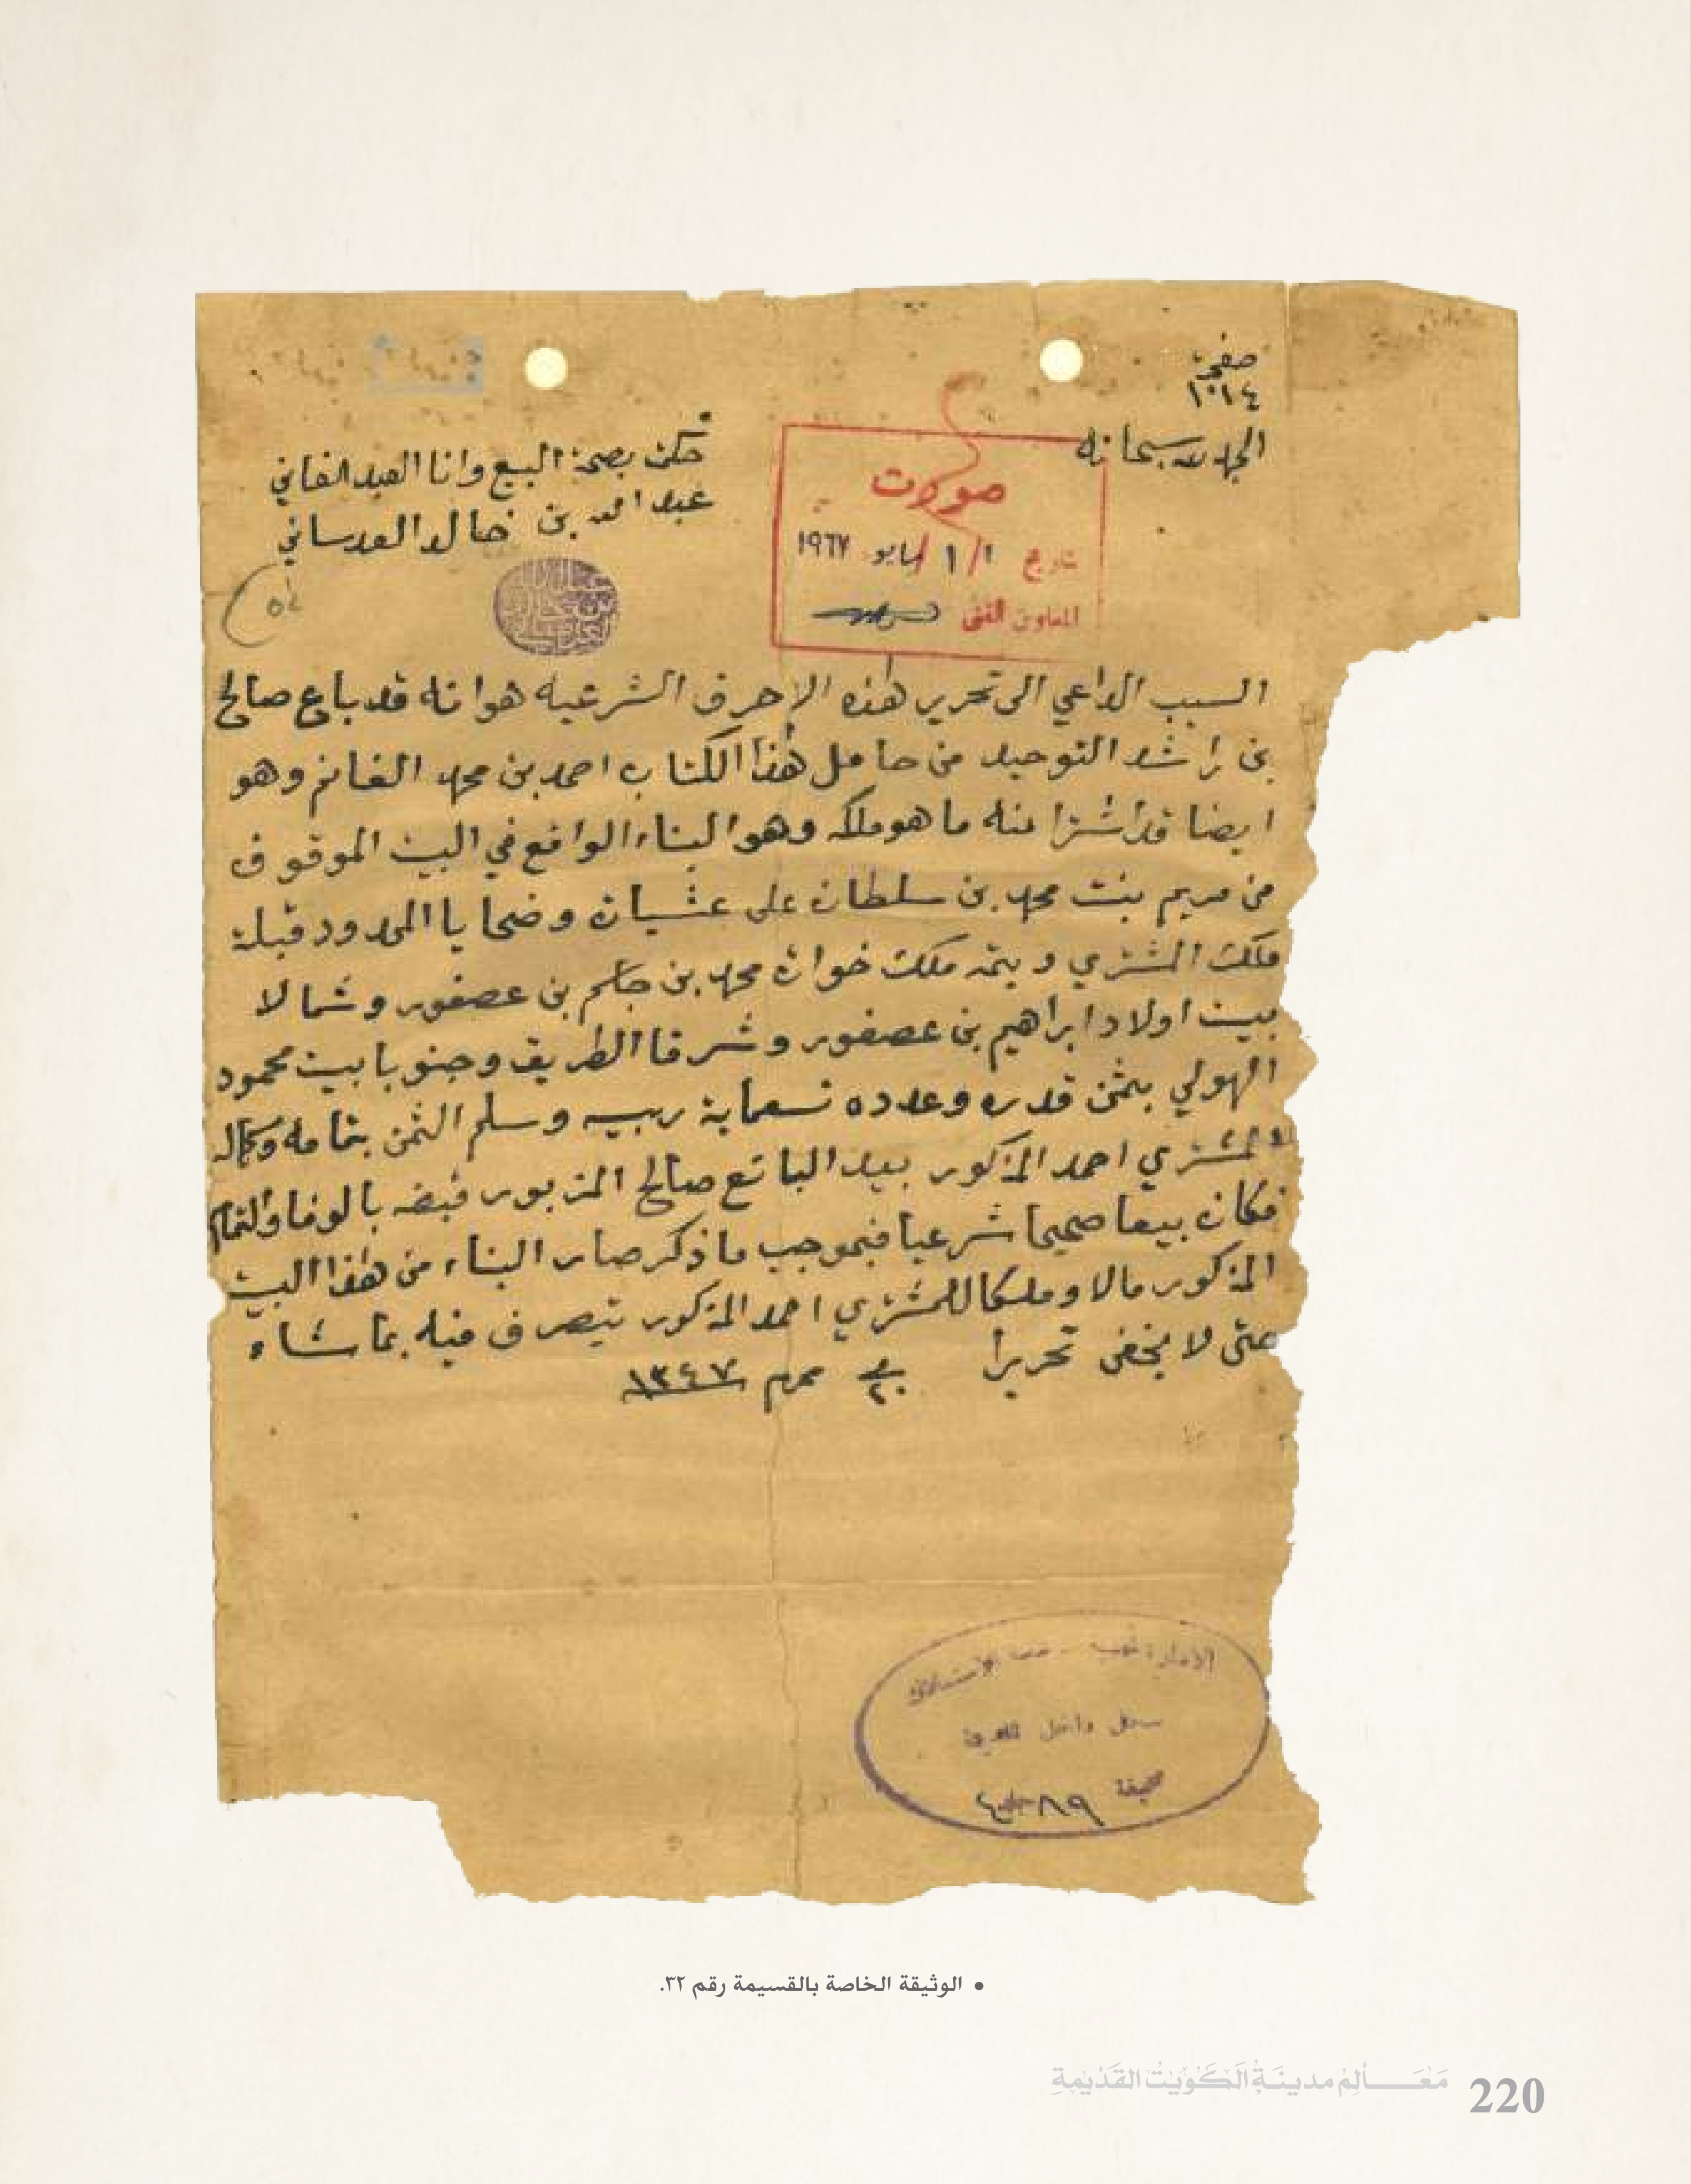 صفحة
١٠١٤
الحمد لله سبحانه
حكمت بصحة البيع وانا العبد الفاني
عبد الله بن خالد العدساني
صورت
تاريخ ١ / ١ مايو ١٩٦٧
المعاون الفني
السبب الداعي الى تحرير هذه الاحرف الشرعية هو انه قد باع صالح
بن راشد التوحيد من حامل هذا الكتاب احمد بن محمد الغانم وهو
ايضا قد اشترا منه ما هو ملكه وهو البناء الواقع في البيت الموقوف
من مريم بنت محمد بن سلطان على عشيات وضحايا المحدود قبلة
ملك المشتري ويتمه ملك خوات محمد بن جاسم بن عصفور وشمالا
بيت اولاد ابراهيم بن عصفور وشرقا الطريق وجنوبا بيت محمود
الهولي بثمن قدره وعدده تسعماية ربيه وسلم الثمن بتمامه وكماله
المشتري احمد المذكور بيد البائع صالح المزبور قبضه بالوفا والتمام
فكان بيعا صحيحا شرعيا فبموجب ما ذكر صار البناء من هذا البيت
المذكور مالا وملكا للمشتري احمد المذكور يتصرف فيه بما شاء
حتى لا يخفى تحريرا في ٢٠ محرم ١٣٤٧
سجل داخل المدينة
صحيفة ٨٩ جلد ٤
• الوثيقة الخاصة بالقسيمة رقم ٣٢.
مَعَالِمُ مدينَةِ الكُوَيْت القَدْيمَةِ 220